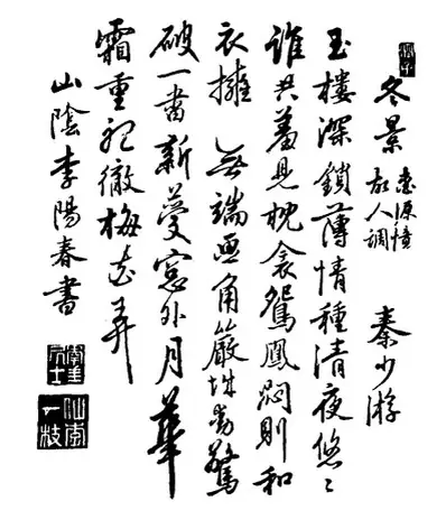 冬景 桃源憶故人調 秦少游
玉樓深鎖薄情種清夜悠〻
誰共羞見枕衾鴛鳳悶則和
衣擁 無端畫角嚴城動驚
破一番新夢窓外月華
霜重聽徹梅花弄
山陰李陽春書